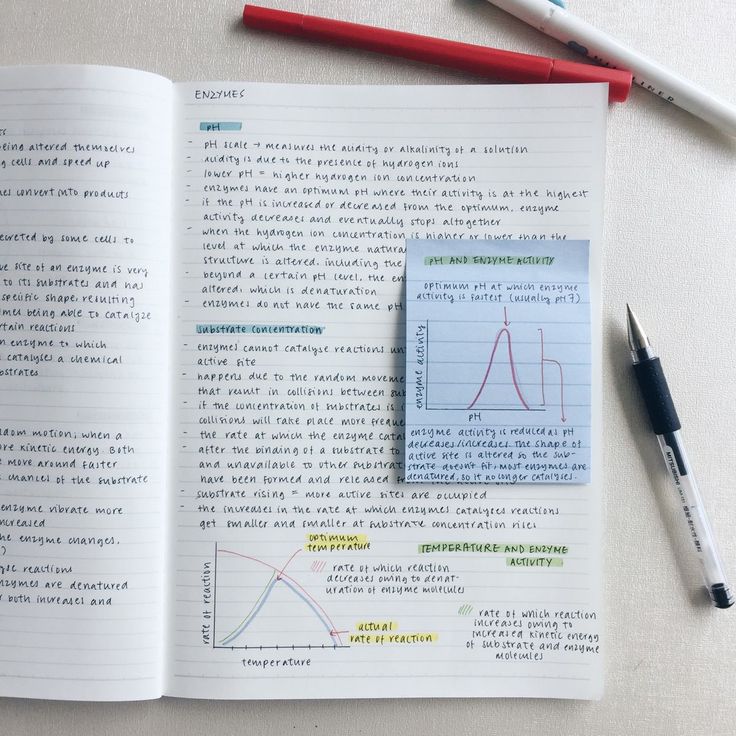 being altered themselves
cells and speed up
convert into products
secreted by some cells to
site of an enzyme is very
to its substrates and has
specific shape, resulting
being able to catalyze
reactions
enzyme to which
catalyses a chemical
motion, when a
kinetic energy. Both
move around faster
chances of the substrate
enzyme vibrate more
increased
the enzyme changes,
reactions
enzymes are denatured
both increases and
ENZYMES
pH
- pH scale → measures the acidity or alkalinity of a solution
- acidity is due to the presence of hydrogen ions
- lower pH = higher hydrogen ion concentration
- enzymes have an optimum pH where their activity is at the highest
- if the pH is increased or decreased from the optimum, enzyme
activity decreases and eventually stops altogether
- when the hydrogen ion concentration is higher or lower than the
level at which the enzyme
structure is altered, including the
- beyond a certain pH level, the
altered, which is denaturation
- enzymes do not have the same pH
substrate concentration
- enzymes cannot catalyse reactions
active site
- happens due to the random
that result in collisions between
- if the concentration of substrates is
collisions will take place more
- the rate at which the enzyme
- after the binding of a substrate to
and unavailable to other
have been formed and released
- substrate rising = more active sites are occupied
- the increases in the rate at which enzymes catalyses reactions
get smaller and smaller at substrate concentration rises
pH AND ENZYME ACTIVITY
optimum pH at which enzyme
activity is fastest (usually pH 7)
enzyme activity
pH
enzyme activity is reduced as pH
decreases/increases the shape of
active site is altered so the sub-
strate doesn't fit, most enzymes are
denatured, so it no longer catalyses.
optimum
temperature
rate of which reaction
decreases owing to denat-
uration of enzyme molecules
actual
rate of reaction
rate of reaction
temperature
TEMPERATURE AND ENZYME
ACTIVITY
rate of which reaction
increases owing to
increased kinetic energy
of substrate and enzyme
molecules